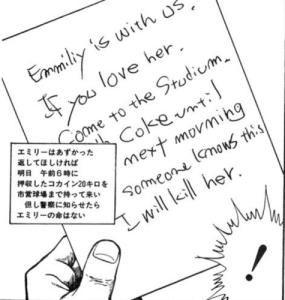 Emmiliy is with us.
If you love her.
Come to the Studium.
with Coke until
next morning
someone knows this
I will kill her.
エミリーはあずかった
返してほしければ
明日 午前6時に
押収したコカイン20キロを
市営球場まで持って来い
但し警察に知らせたら
エミリーの命はない
!